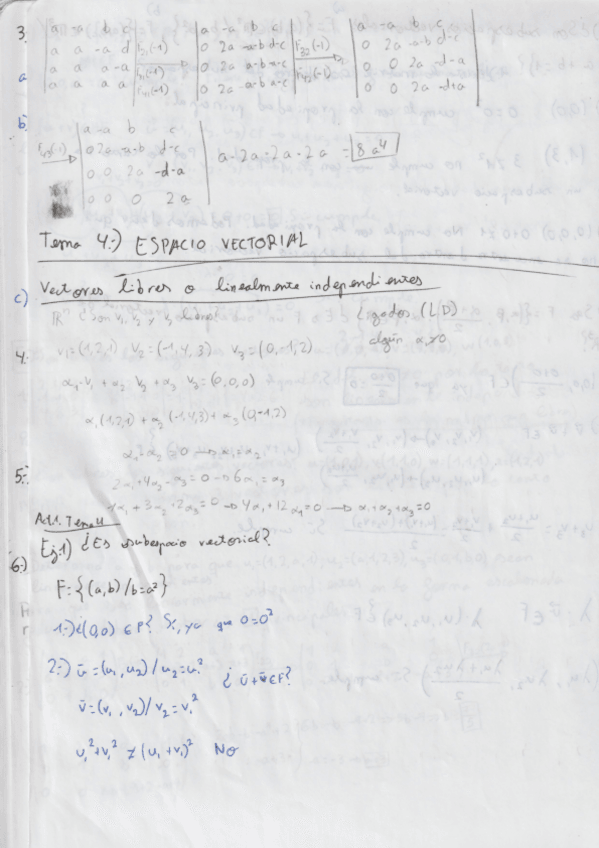 3. | a -a b c | | a -a b c | | a -a b c |
| a a -a d | F21(-1) | 0 2a -a-b d-c | F32(-1) | 0 2a -a-b d-c |
a | a a a -a | F31(-1) | 0 2a a-b -a-c | F42(-1) | 0 0 2a -d-a |
| a a a a | F41(-1) | 0 2a a-b a-c | | 0 0 2a -d+a |
b) | a -a b c |
F43(-1) | 0 2a -a-b d-c | a·2a·2a·2a = 8a⁴
| 0 0 2a -d-a |
| 0 0 0 2a |
Tema 4:) ESPACIO VECTORIAL
c) Vectores libres o linealmente independientes
¿Son v₁, v₂ y v₃ libres o ligados (LD)
algún α≠0
4: v₁=(1,2,1) v₂=(-1,4,3) v₃=(0,-1,2)
α₁·v₁ + α₂ v₂ + α₃ v₃=(0,0,0)
α₁(1,2,1) + α₂(-1,4,3)+α₃(0,-1,2)
α₁-α₂=0 → α₁=α₂
5: 2α₁+4α₂-α₃=0→6α₁=α₃
α₁+3α₂+2α₃=0→4α₁+12α₁=0→α₁+α₂+α₃=0
Act. Tema 4
6:) Ej:1) ¿Es subespacio vectorial?
F={(a,b)/b=a²}
1:) ¿(0,0)∈F? Sí, ya que 0=0²
2:) ū=(u₁,u₂)/u₂=u₁² ¿ū+v̄∈F?
v̄=(v₁,v₂)/v₂=v₁²
u₁²+v₁²≠(u₁+v₁)² No